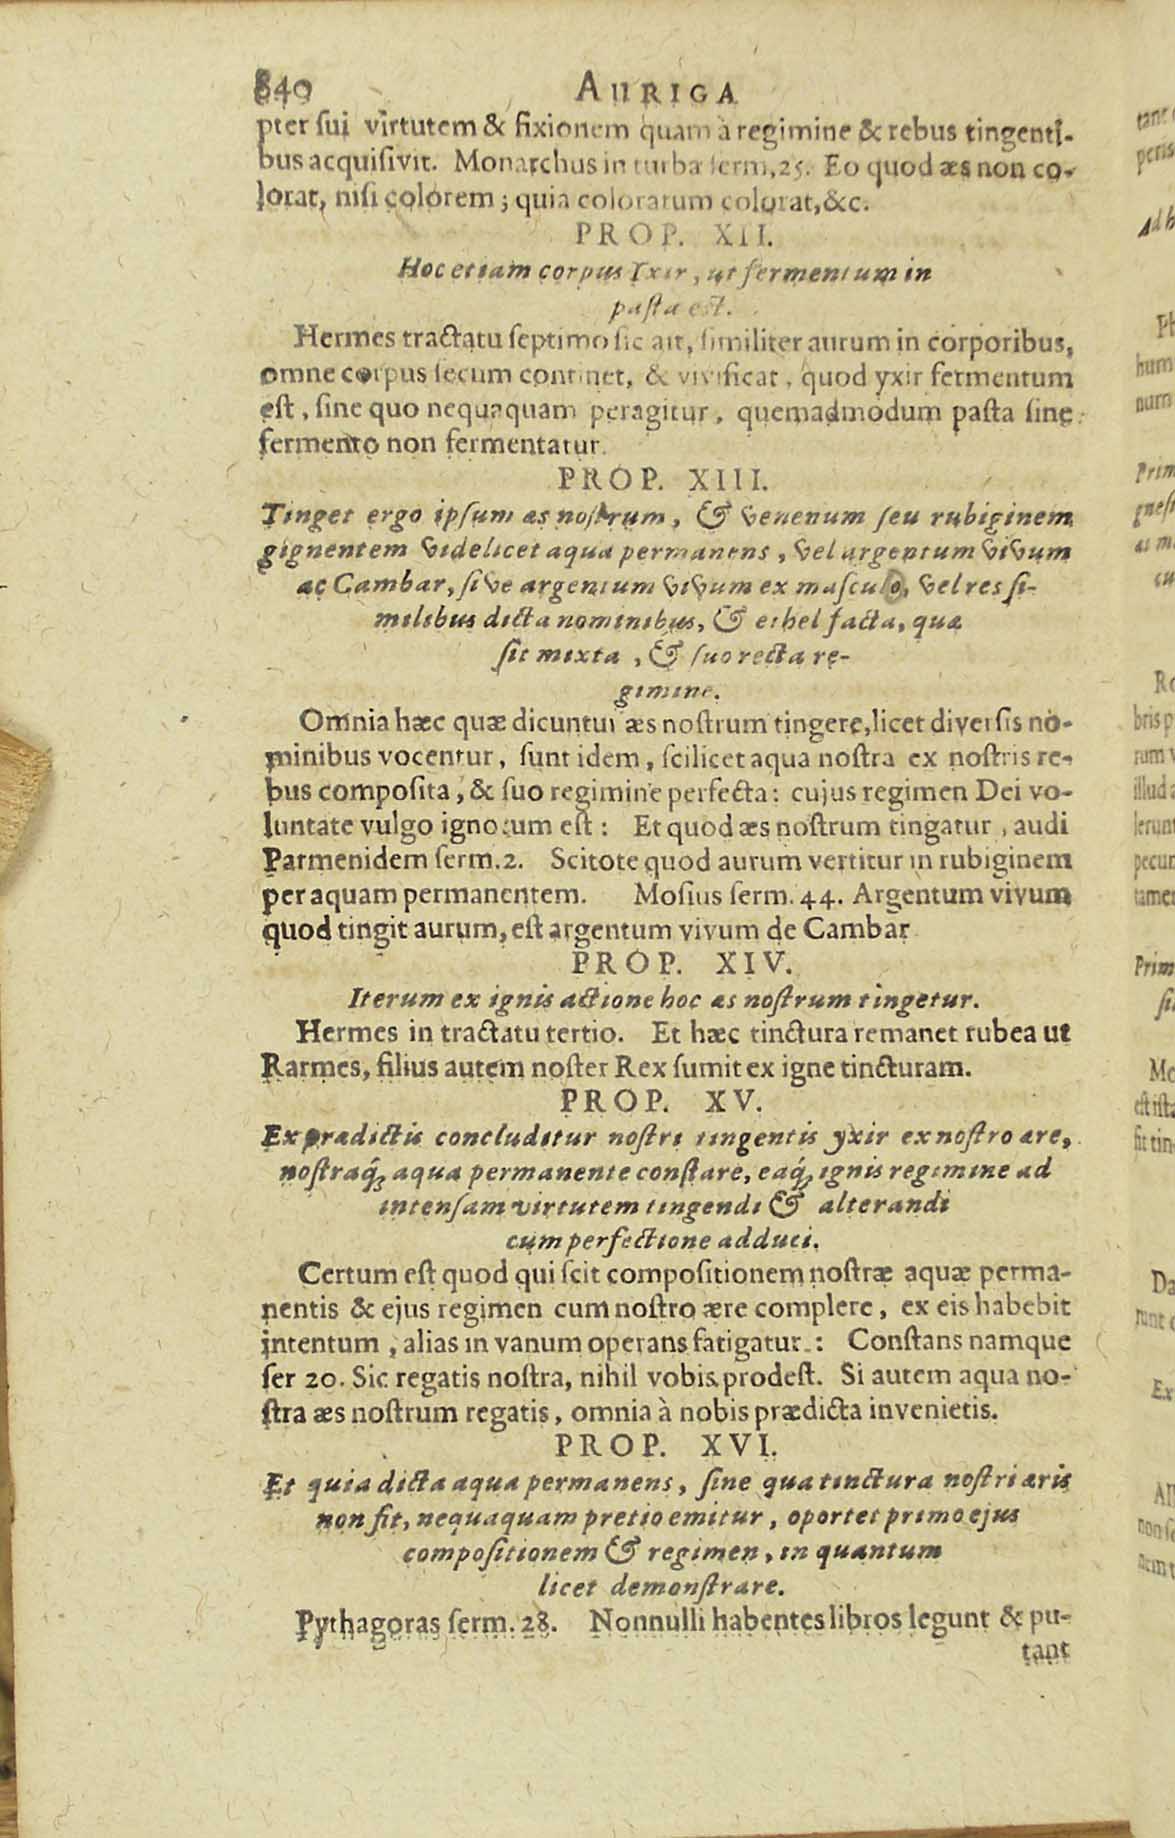 840 AURIGA
pter ſui virtutem & fixionem quam à regimine & rebus tingenti-
bus acquiſivit. Monarchus in turba ſerm, 25. Eo quod æs non co-
lorat, niſi colorem; quia coloratum colorat, &c.
PROP. XII.
Hoc etiam corpus Ixir, ut fermentum in
paſta est.
Hermes tractatu ſeptimo ſic ait, ſimiliter aurum in corporibus,
omne corpus ſecum continet, & vivificat, quod yxir fermentum
eſt, ſine quo nequaquam peragitur, quemadmodum paſta ſine
fermento non fermentatur.
PROP. XIII.
Tinget ergo ipſum æs noſtrum, & venenum ſeu rubiginem
gignentem videlicet aqua permanens, vel argentum vivum
ac Cambar, ſive argentum vivum ex maſculo, vel res ſi-
milibus dicta nominibus, & ethel facta, quæ
ſit mixta, & ſuo recta re-
gimine.
Omnia hæc quæ dicuntur æs noſtrum tingere, licet diverſis no-
minibus vocentur, ſunt idem, ſcilicet aqua noſtra ex noſtris re-
bus compoſita, & ſuo regimine perfecta: cujus regimen Dei vo-
luntate vulgo ignotum eſt: Et quod æs noſtrum tingatur, audi
Parmenidem ſerm. 2. Scitote quod aurum vertitur in rubiginem
per aquam permanentem. Moſius ſerm. 44. Argentum vivum
quod tingit aurum, eſt argentum vivum de Cambar
PROP. XIV.
Iterum ex ignis actione hoc æs noſtrum tingetur.
Hermes in tractatu tertio. Et hæc tinctura remanet rubea ut
Rarmes, filius autem noſter Rex ſumit ex igne tincturam.
PROP. XV.
Ex prædictis concluditur noſtri tingentis yxir ex noſtro ære,
noſtraq́; aqua permanente conſtare, eaq́; ignis regimine ad
intenſam virtutem tingendi & alterandi
cum perfectione adduci.
Certum eſt quod qui ſcit compoſitionem noſtræ aquæ perma-
nentis & ejus regimen cum noſtro ære complere, ex eis habebit
intentum, alias in vanum operans fatigatur: Conſtans namque
ſer 20. Sic regatis noſtra, nihil vobis prodeſt. Si autem aqua no-
ſtra æs noſtrum regatis, omnia à nobis prædicta invenietis.
PROP. XVI.
Et quia dicta aqua permanens, ſine qua tinctura noſtri æris
non fit, nequaquam pretio emitur, oportet primo ejus
compoſitionem & regimen, in quantum
licet demonſtrare.
Pythagoras ſerm. 28. Nonnulli habentes libros legunt & pu-
tant